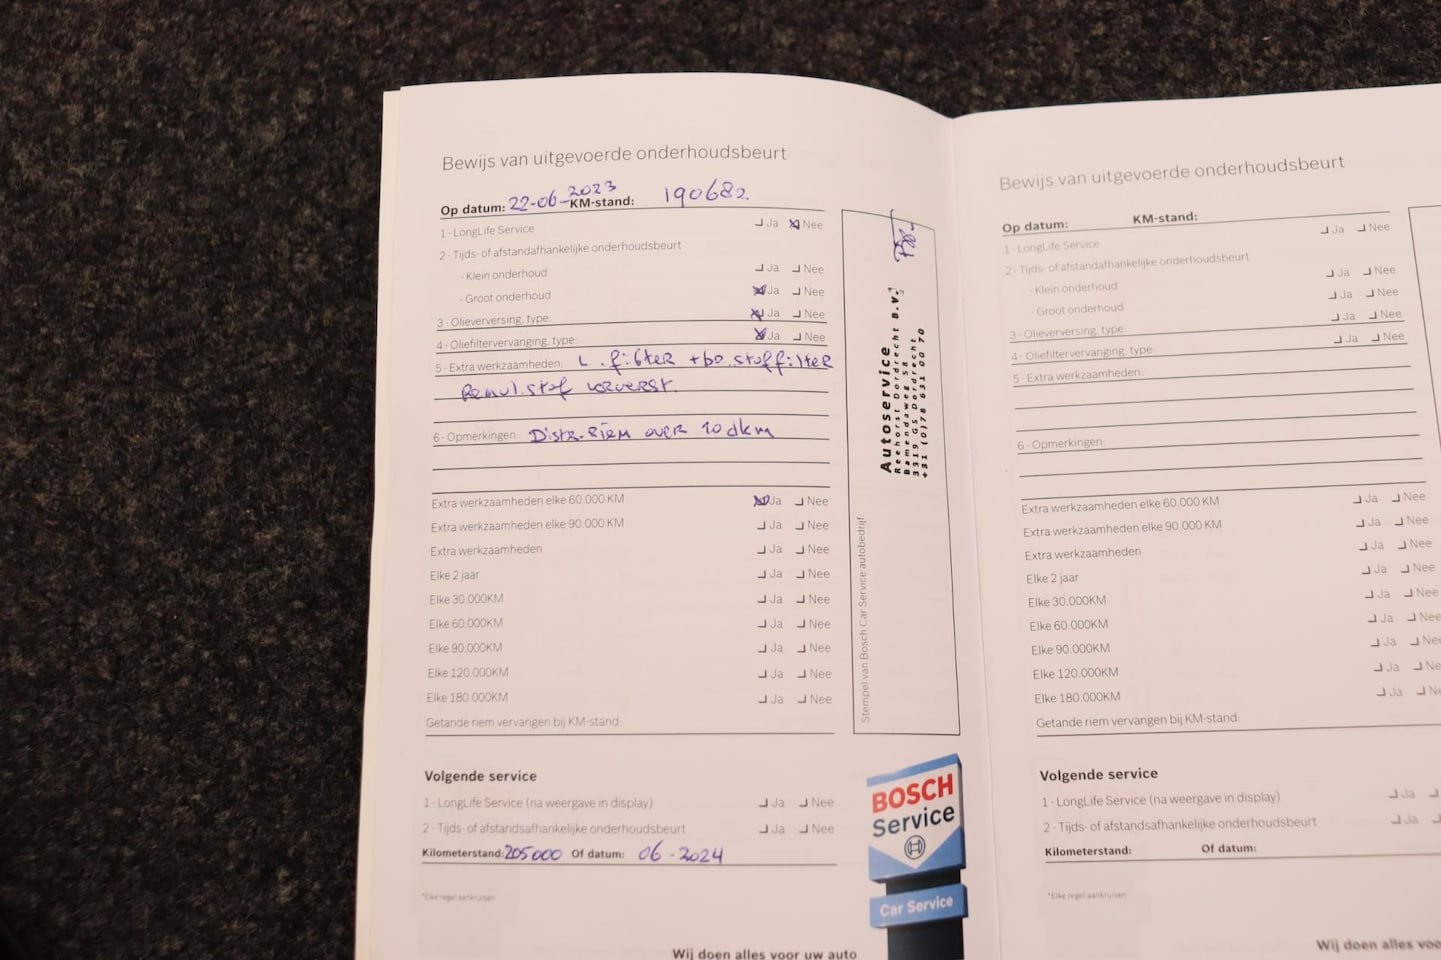 Bewijs van uitgevoerde onderhoudsbeurt
Op datum: 22-06-2023 KM-stand: 190682.
1 - LongLife Service Ja Nee
2 - Tijds- of afstandafhankelijke onderhoudsbeurt
- Klein onderhoud Ja Nee
- Groot onderhoud Ja Nee
3 - Olieverversing, type: Ja Nee
4 - Oliefiltervervanging, type: Ja Nee
5 - Extra werkzaamheden: L. filter + stoffilter
6 - Opmerkingen: Distr. Riem over 10dkm
Extra werkzaamheden elke 60.000 KM Ja Nee
Extra werkzaamheden elke 90.000 KM Ja Nee
Extra werkzaamheden Ja Nee
Elke 2 jaar Ja Nee
Elke 30.000KM Ja Nee
Elke 60.000KM Ja Nee
Elke 90.000KM Ja Nee
Elke 120.000KM Ja Nee
Elke 180.000KM Ja Nee
Getande riem vervangen bij KM-stand:
Volgende service
1 - LongLife Service (na weergave in display) Ja Nee
2 - Tijds- of afstandsafhankelijke onderhoudsbeurt Ja Nee
Kilometerstand: 205000 Of datum: 06-2024
*Elke regel aankruisen
Wij doen alles voor uw auto
Autoservice
Reehorst Dordrecht B.V.
Bamendaweg 5a
3319 GS Dordrecht
+31 (0)78 631 00 70
Stempel van Bosch Car Service autobedrijf:
BOSCH
Service
Car Service
Bewijs van uitgevoerde onderhoudsbeurt
Op datum: KM-stand:
1 - LongLife Service Ja Nee
2 - Tijds- of afstandafhankelijke onderhoudsbeurt
- Klein onderhoud Ja Nee
- Groot onderhoud Ja Nee
3 - Olieverversing, type: Ja Nee
4 - Oliefiltervervanging, type: Ja Nee
5 - Extra werkzaamheden:
6 - Opmerkingen:
Extra werkzaamheden elke 60.000 KM Ja Nee
Extra werkzaamheden elke 90.000 KM Ja Nee
Extra werkzaamheden Ja Nee
Elke 2 jaar Ja Nee
Elke 30.000KM Ja Nee
Elke 60.000KM Ja Nee
Elke 90.000KM Ja Nee
Elke 120.000KM Ja Ne
Elke 180.000KM Ja Ne
Getande riem vervangen bij KM-stand:
Volgende service
1 - LongLife Service (na weergave in display) Ja
2 - Tijds- of afstandsafhankelijke onderhoudsbeurt Ja
Kilometerstand: Of datum:
*Elke regel aankruisen
Wij doen alles voo